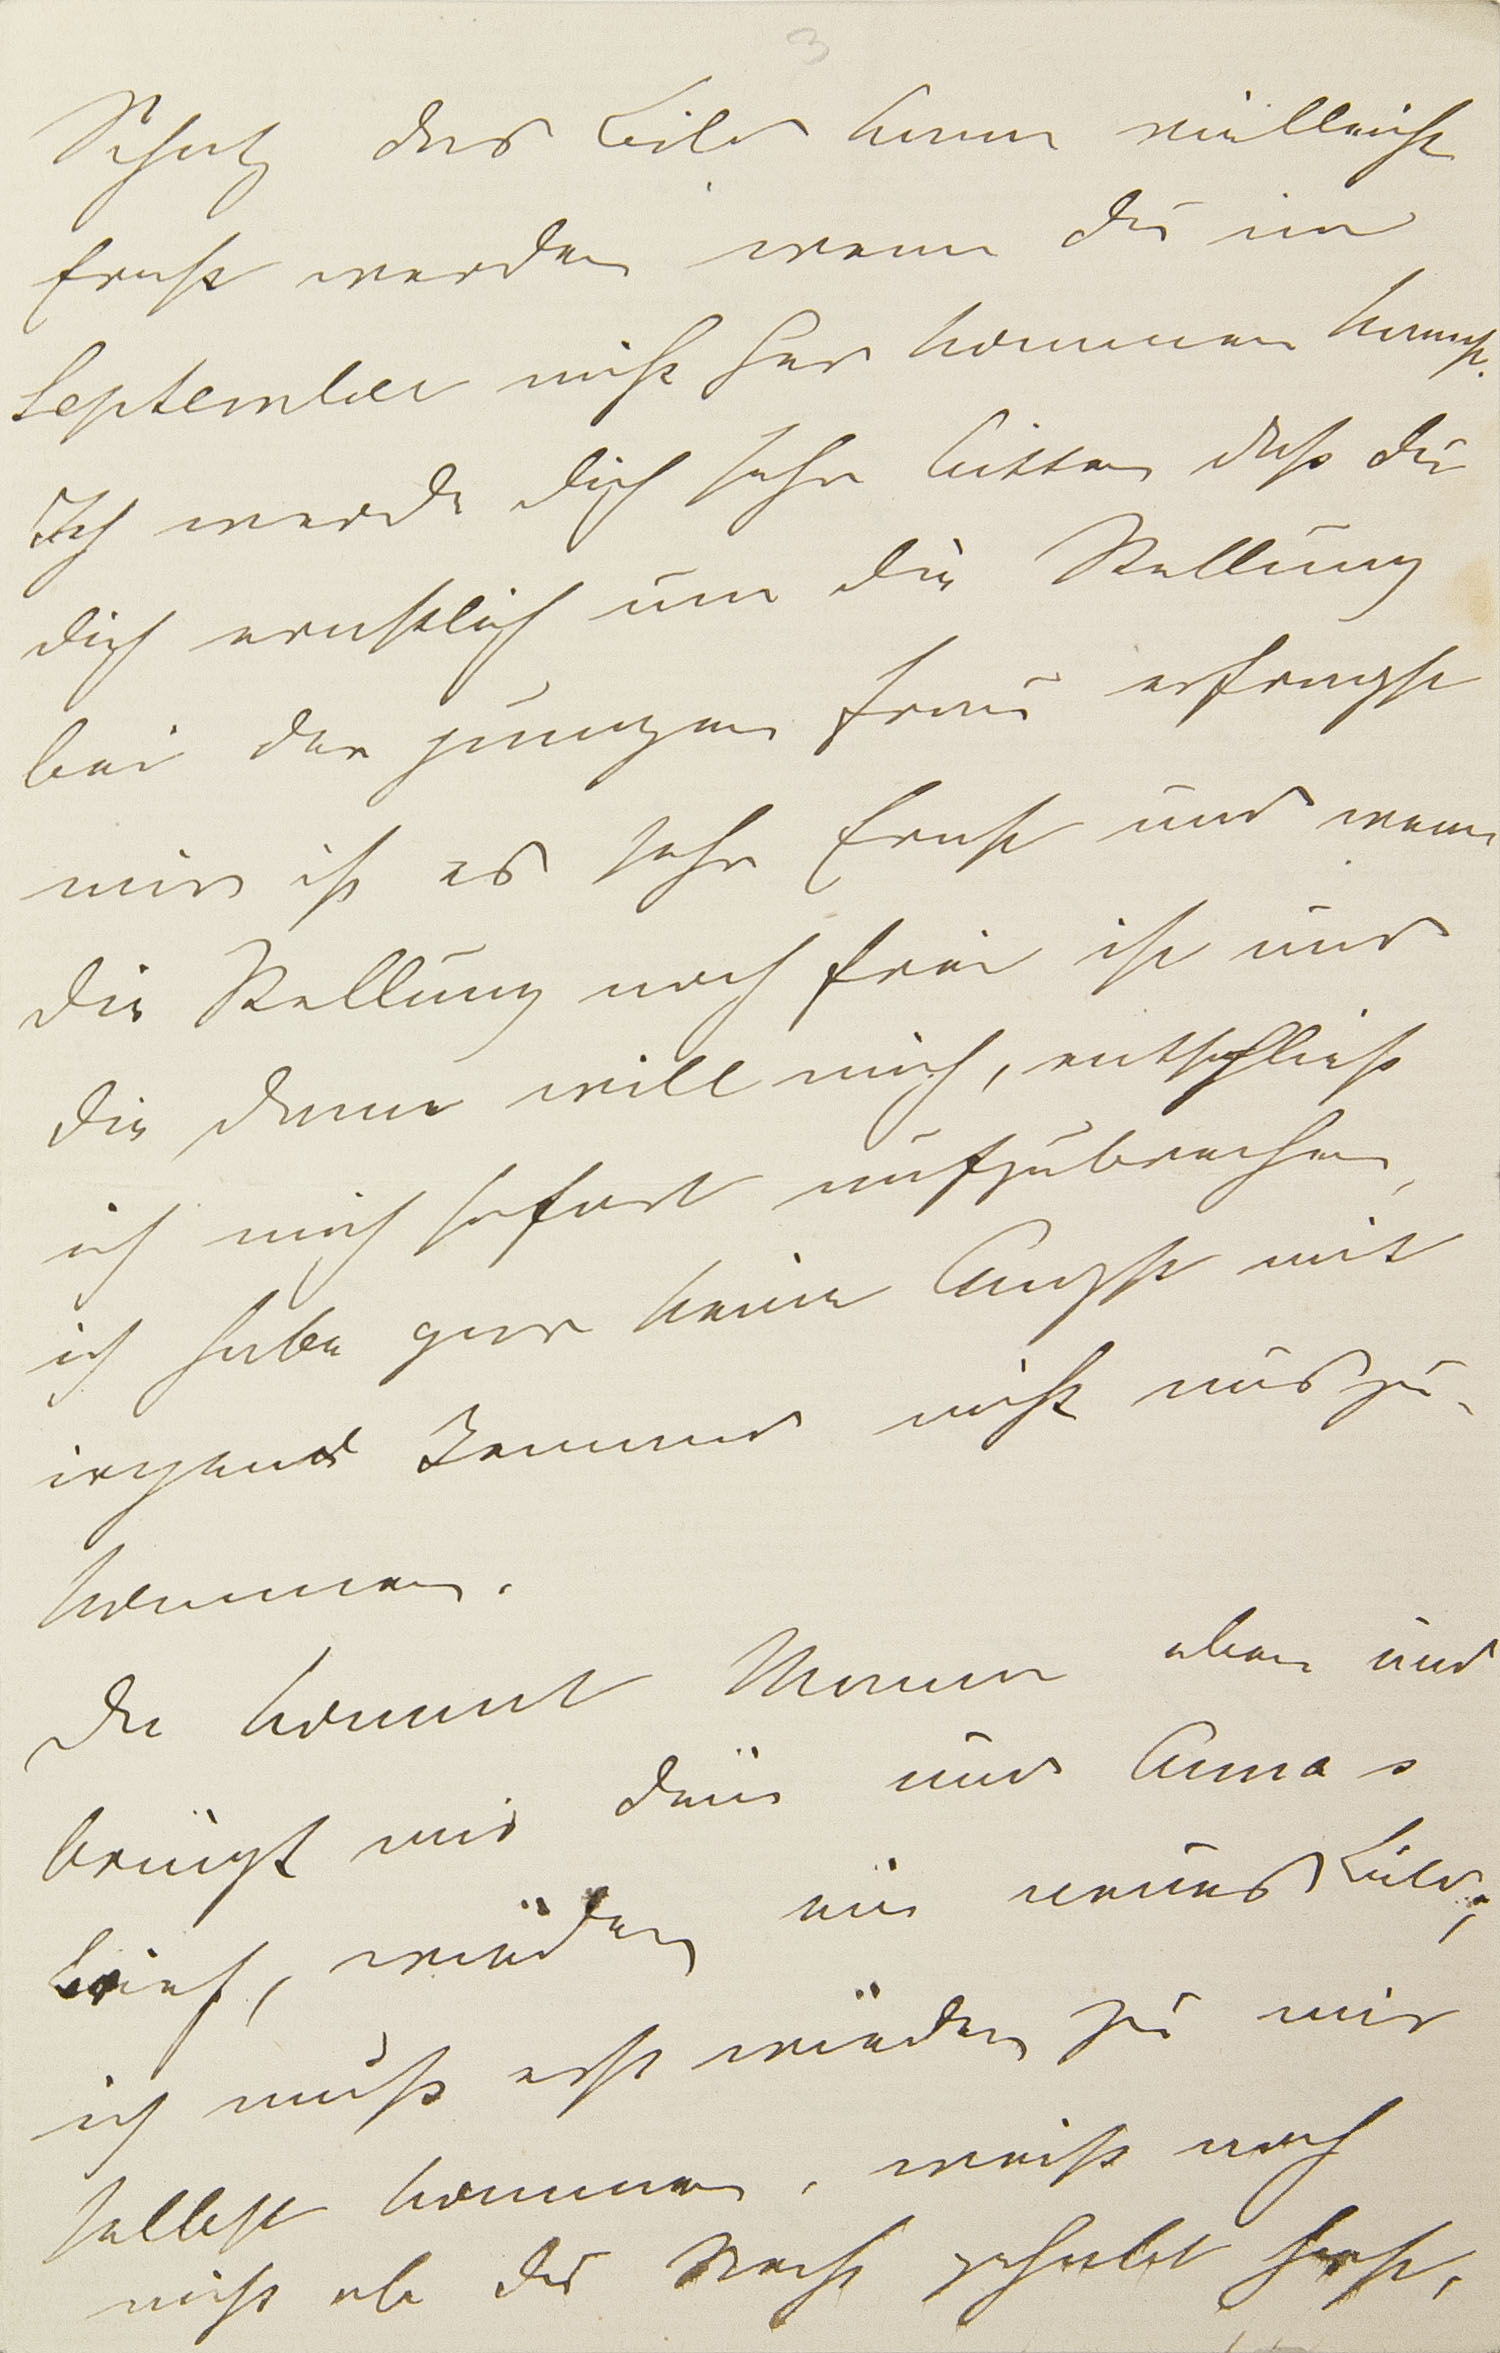 3
Schatz das Bild kann vielleicht
Ernst werden wenn du im
September nicht her kommen kannst.
Ich werde dich sehr bitten daß du
dich ernstlich um die Stellung
bei der jungen Frau erfragst
mir ist es sehr Ernst und wenn
die Stellung noch frei ist und
die Dame will mich, entschließ
ich mich sofort aufzubrechen,
ich habe gar keine Angst mit
irgend Jemand nicht auszu-
kommen.
Da kommt Mama eben und
bringt mir dein und Anna s
Brief, wieder ein neues Bild,
ich muß erst wieder zu mir
selbst kommen, weiß noch
nicht ob du Recht gehabt hast,